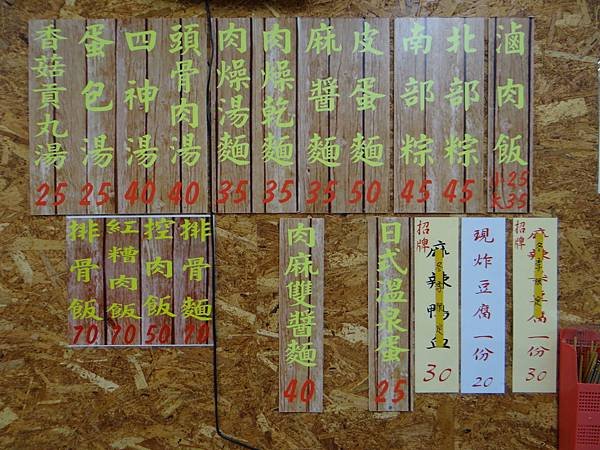 滷肉飯 小25 大35
北部粽 45
南部粽 45
皮蛋麵 50
麻醬麵 35
肉燥乾麵 35
肉燥湯麵 35
頭骨肉湯 40
四神湯 40
蛋包湯 25
香菇貢丸湯 25
招牌 麻辣 腐一份 30
現炸豆腐一份 20
招牌 麻辣鴨血 30
日式溫泉蛋 25
肉麻雙醬麵 40
排骨麵 70
控肉飯 50
紅糟肉飯 70
排骨飯 70